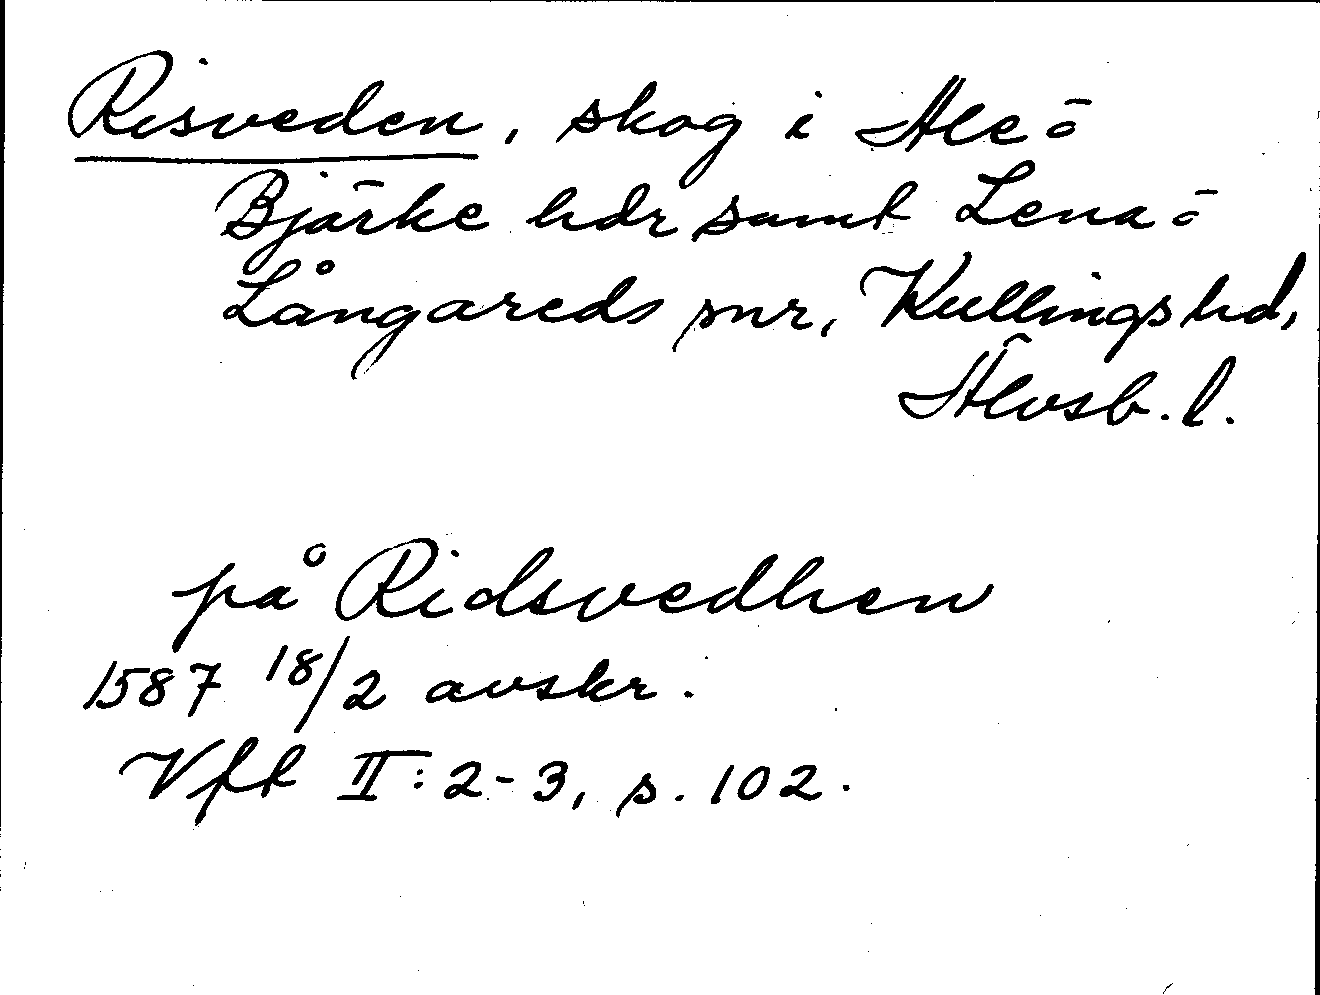 Risveden, skog i Ale o
Bjärke hdr samt Lena o
Långareds snr, Kullings hd,
Älvsb. l.
på Ridsvedhen
1587 18/2 avskr.
Vft II: 2-3, s. 102.